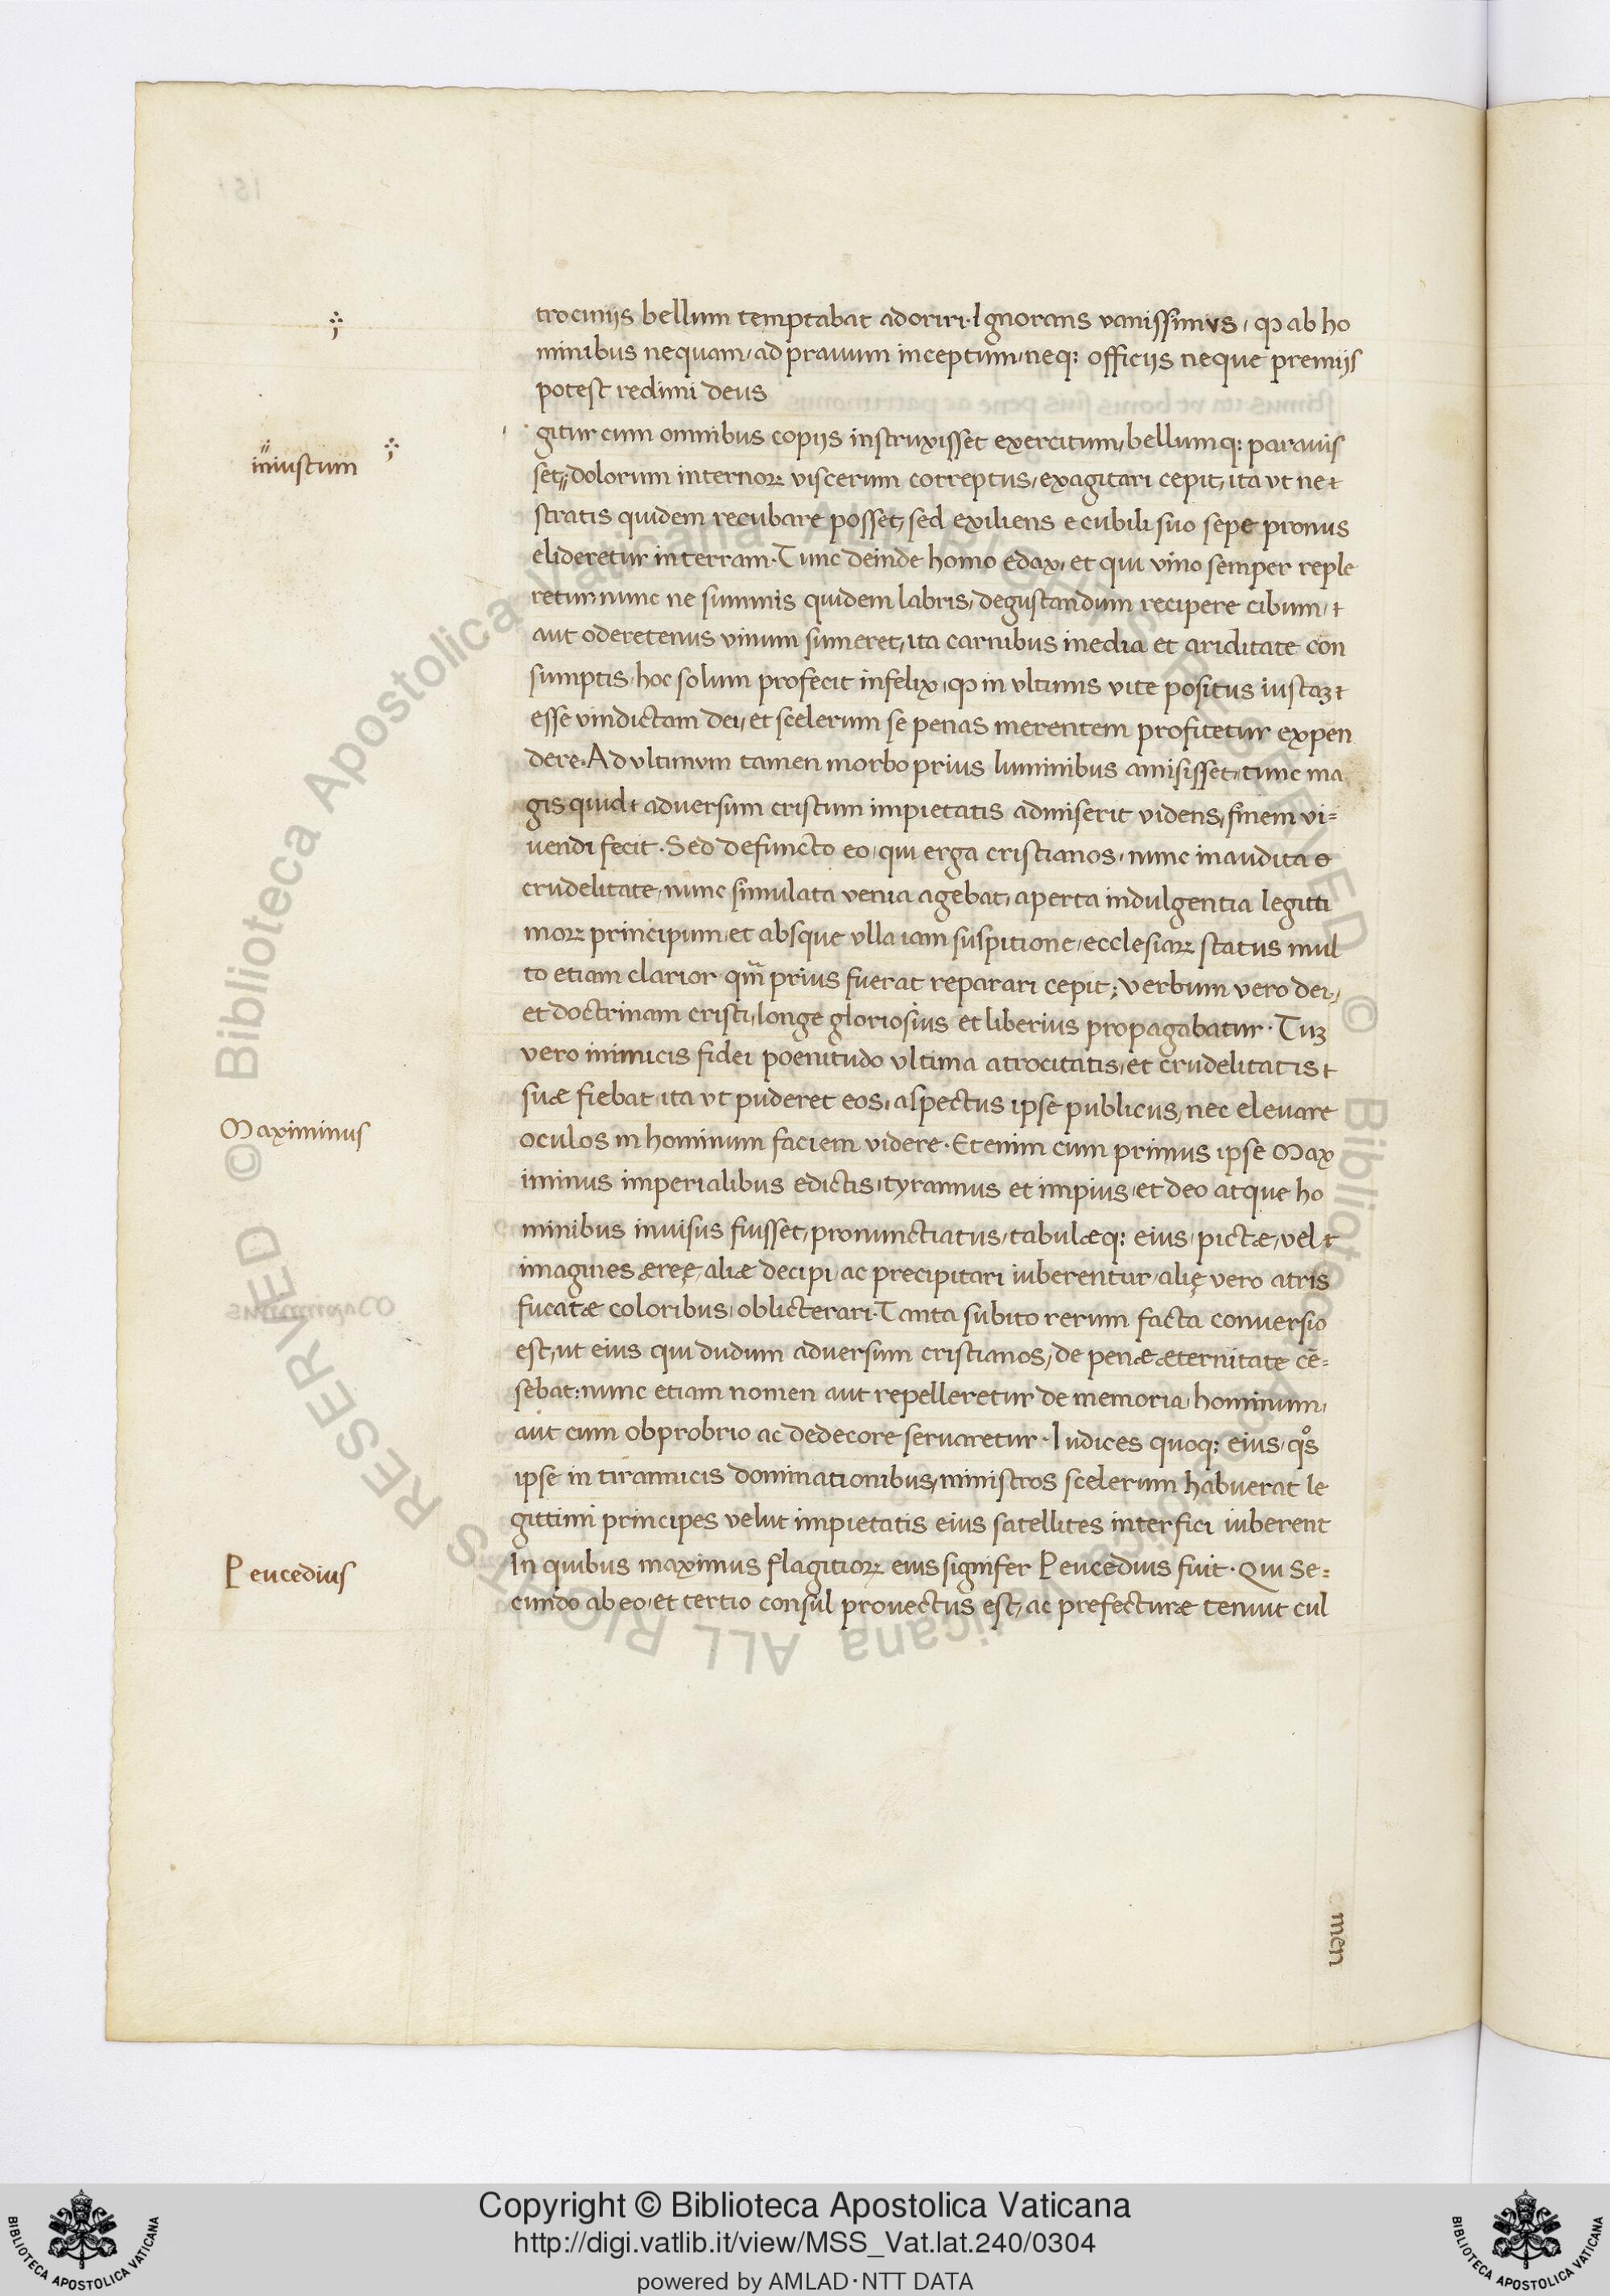 trociniis bellum temptabat adoriri. Ignorans vanissimus, ꝙ ab ho
minibus nequam, ad pravum inceptum, neq; officijs neque premijs
potest redimi deus
gitur cum omnibus copijs instruxisset exercitum, bellumq; paravis
iniustum
set, dolorum internoꝝ viscerum correptus, exagitari cepit, ita vt ne
stratis quidem recubare posset, sed exiliens e cubili suo sepe pronus
elideretur in terram. Tunc deinde homo edax, et qui vino semper reple
retur nunc ne summis quidem labris, degustandum recipere cibum,
aut oderetenus vinum sumeret, ita carnibus inedia et ariditate con
sumptis, hoc solum profecit infelix, ꝙ in vltimis vite positus iustaꝫ
esse vindictam dei, et scelerum se penas merentem profitetur expen
dere. Ad vltimum tamen morbo prius luminibus amisisset, tunc ma
gis quid adversum cristum impietatis admiserit videns, finem vi=
vendi fecit. Sed defuncto eo, qui erga cristianos, nunc inaudita
crudelitate, nunc simulata venia agebat, aperta indulgentia legitti
moꝝ principum, et absque vlla iam suspitione, ecclesiaꝝ status mul
to etiam clarior qm̃ prius fuerat reparari cepit; verbum vero dei,
et doctrinam cristi, longe gloriosius et liberius propagabatur. Tuꝫ
vero inimicis fidei poenitudo vltima atrocitatis, et crudelitatis
suæ fiebat, ita vt puderet eos, aspectus ipse publicus, nec elevare
Maximinus
oculos in hominum faciem videre. Etenim cum primus ipse Max
iminus imperialibus edictis, tyrannus et impius, et deo atque ho
minibus invisus fuisset, pronunctiatus, tabulæq; eius, pictæ, vel
imagines æreę, aliæ decipi, ac precipitari iuberentur, alię vero atris
fucatæ coloribus, oblicterari. Tanta subito rerum facta conversio
est, ut eius qui dudum adversum cristianos, de penæ æternitate cē=
sebat: nunc etiam nomen aut repelleretur de memoria, hominum,
aut cum obprobrio ac dedecore servaretur. Iudices quoq; eius, qͦs
ipse in tirannicis dominationibus, ministros scelerum habuerat le
gittimi principes velut impietatis eius satellites interfici iuberent
Peucedius
In quibus maximus flagitioꝝ eius signifer Peucedius fuit. Qui Se=
cundo ab eo, et tertio consul provectus est, ac prefecturæ tenuit cul
men
Copyright © Biblioteca Apostolica Vaticana
http://digi.vatlib.it/view/MSS_Vat.lat.240/0304
powered by AMLAD · NTT DATA
BIBLIOTECA APOSTOLICA VATICANA
BIBLIOTECA APOSTOLICA VATICANA
© Biblioteca Apostolica Vaticana ALL RIGHTS RESERVED
© Biblioteca Apostolica Vaticana ALL RIGHTS RESERVED